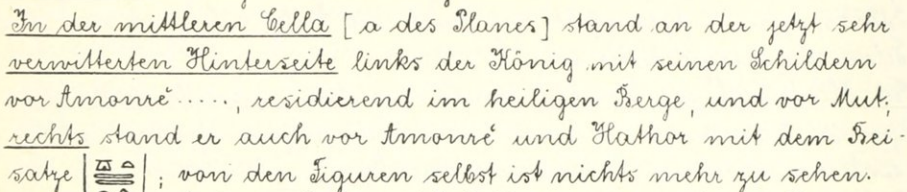 In der mittleren Cella [a des Planes] stand an der jetzt sehr
verwitterten Hinterseite links der König mit seinen Schildern
vor Amonrē ....., residierend im heiligen Berge, und vor Mut;
rechts stand er auch vor Amonrē und Hathor mit dem Bei-
satze | | ; von den Figuren selbst ist nichts mehr zu sehen.